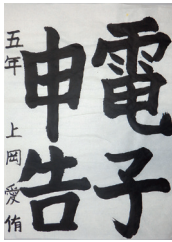 電子
申告
五年 上岡愛侑